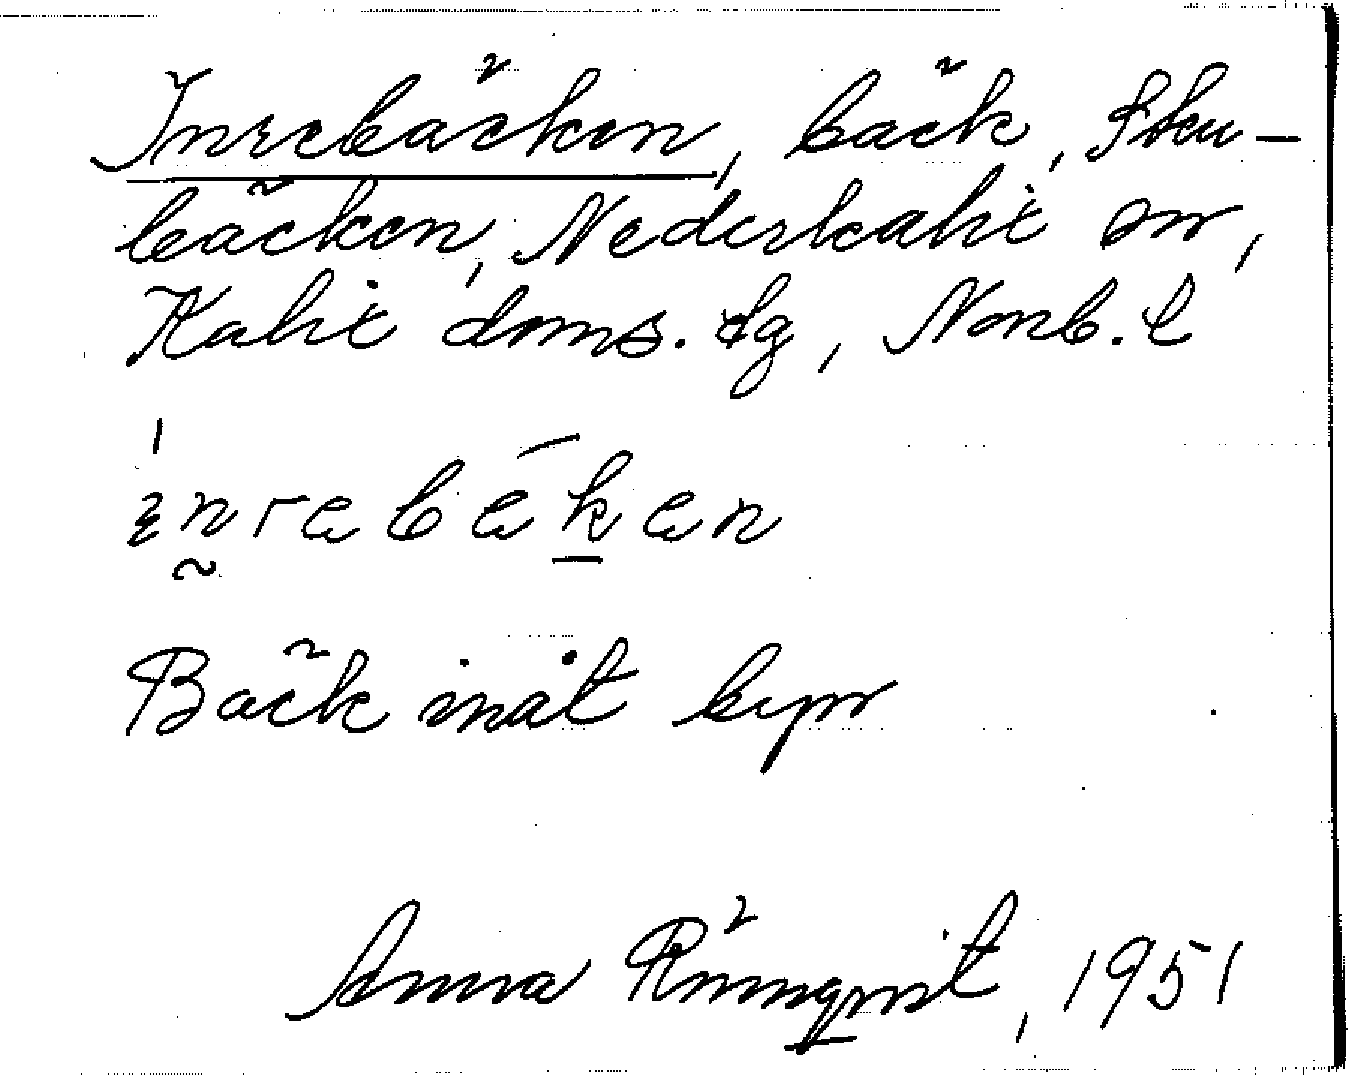 Inrebäcken, bäck, Sku-
bäcken, Nederkalix sn,
Kalix doms. dg, Norrb. l
inrebäkan
Bäck inåt byn
Anna Rönnqvist, 1951